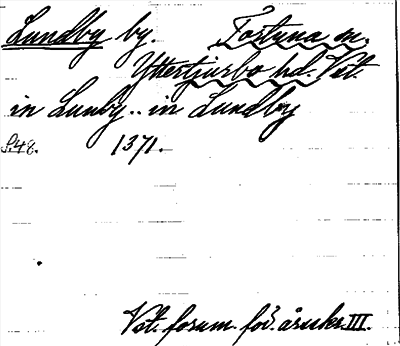 Lundby by. Tortuna sn.
Yttertjurbo hd. Vst.
in Lunby.. in Lundby
S.48. 1371.
Vst. forum. för. årsskr. III.